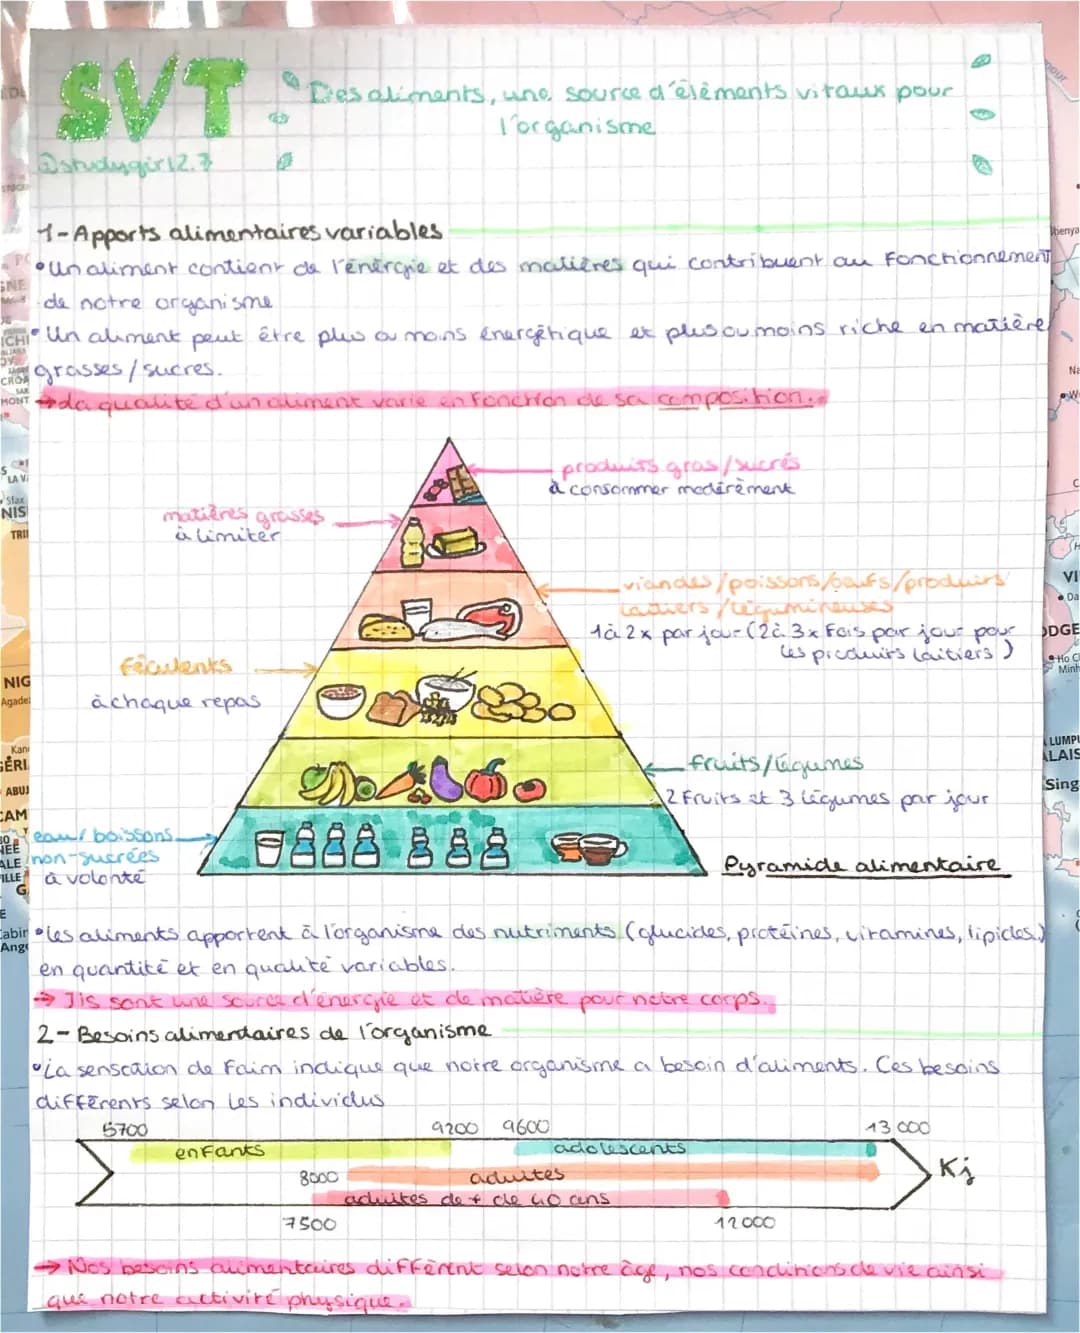 SVT
Des aliments, une source d'éléments vitaux pour
l'organisme
@studygirl2.7
1-Apports alimentaires variables
• Un aliment contient de l'énergie et des matières qui contribuent au fonctionnement
de notre organisme
• Un aliment peut être plus ou moins énergétique et plus ou moins riche en matière
grasses/sucres.
→ La qualité d'un aliment varie en fonction de sa composition.
produits gras/sucrés
à consommer modérément
matières grasses
à limiter
viandes/poissons/œufs/produits
laitiers/légumineuses
1 à 2x par jour (2 à 3x fois par jour pour
les produits laitiers)
Féculents
à chaque repas
fruits/légumes
2 fruits et 3 légumes par jour
eau/boissons
non-sucrées
à volonté
Pyramide alimentaire
• les aliments apportent à l'organisme des nutriments (glucides, protéines, vitamines, lipides.)
en quantité et en qualité variables.
→ Ils sont une source d'énergie et de matière pour notre corps.
2- Besoins alimentaires de l'organisme
• La sensation de faim indique que notre organisme a besoin d'aliments. Ces besoins
différents selon les individus
5700 9200 9600 13 000
enfants adolescents
8000 adultes
Kj
adultes de + de 40 ans
7500 12000
→ Nos besoins alimentaires diffèrent selon notre âge, nos conditions de vie ainsi
que notre activité physique.